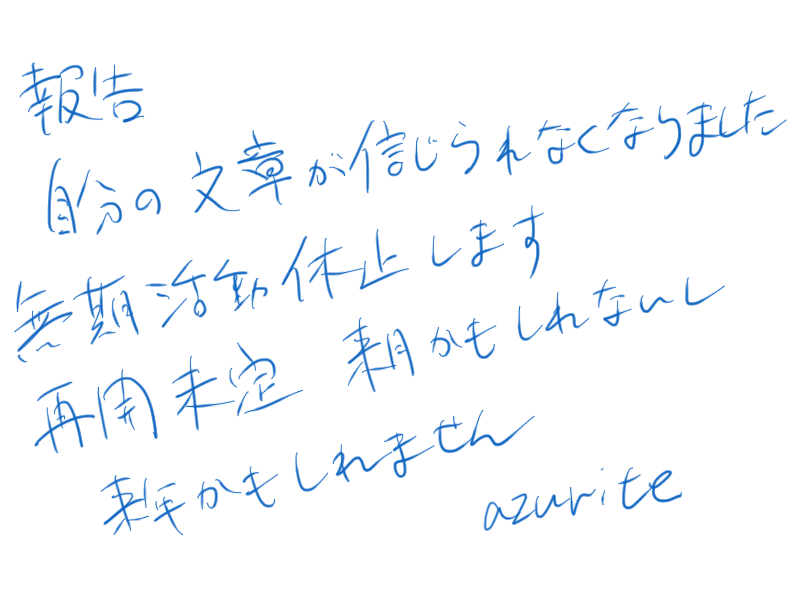 報告
自分の文章が信じられなくなりました
無期活動休止します
再開未定 来月かもしれないし
来年かもしれません
azurite